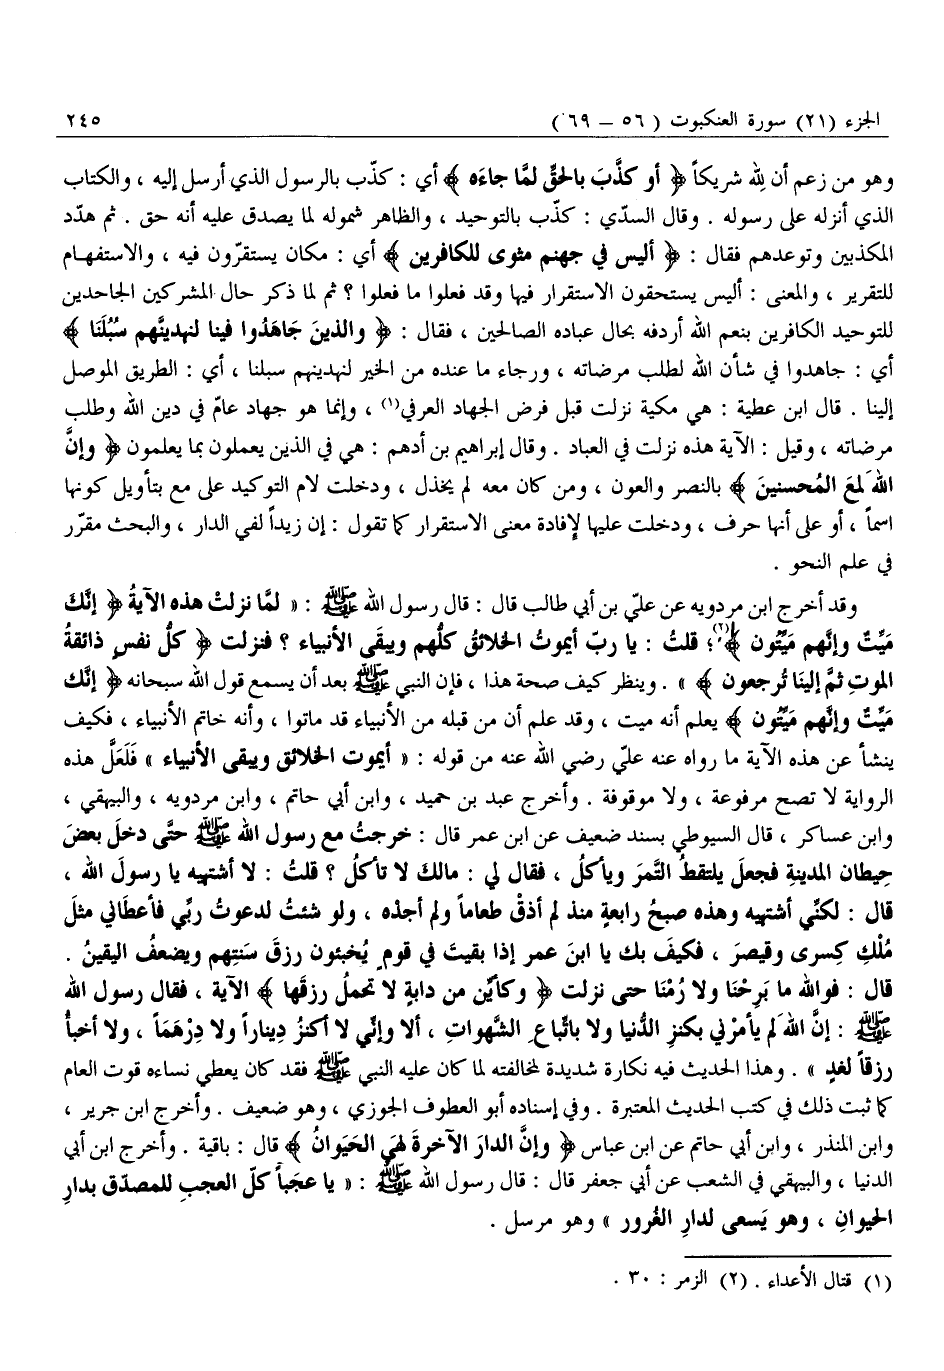 الجزء (٢١) سورة العنكبوت (٥٦ – ٦٩) ٢٤٥
وهو من زعم أن لله شريكاً ﴿ أو كذَّبَ بالحقِّ لمَّا جاءَه ﴾ أي : كذّب بالرسول الذي أرسل إليه ، والكتاب
الذي أنزله على رسوله . وقال السدّي : كذّب بالتوحيد ، والظاهر شموله لما يصدق عليه أنه حق . ثم هدّد
المكذبين وتوعدهم فقال : ﴿ أليس في جهنم مثوى للكافرين ﴾ أي : مكان يستقرّون فيه ، والاستفهام
للتقرير ، والمعنى : أليس يستحقون الاستقرار فيها وقد فعلوا ما فعلوا ؟ ثم لما ذكر حال المشركين الجاحدين
للتوحيد الكافرين بنعم الله أردفه بحال عباده الصالحين ، فقال : ﴿ والذينَ جَاهَدُوا فينا لنهدينَّهم سُبُلَنَا ﴾
أي : جاهدوا في شأن الله لطلب مرضاته ، ورجاء ما عنده من الخير لنهدينهم سبلنا ، أي : الطريق الموصل
إلينا . قال ابن عطية : هي مكية نزلت قبل فرض الجهاد العرفي(١) ، وإنما هو جهاد عامّ في دين الله وطلب
مرضاته ، وقيل : الآية هذه نزلت في العباد . وقال إبراهيم بن أدهم : هي في الذين يعملون بما يعلمون ﴿ وإنَّ
اللهَ لمعَ المُحسنينَ ﴾ بالنصر والعون ، ومن كان معه لم يخذل ، ودخلت لام التوكيد على مع بتأويل كونها
اسماً ، أو على أنها حرف ، ودخلت عليها لإفادة معنى الاستقرار كما تقول : إن زيداً لفي الدار ، والبحث مقرّر
في علم النحو .
وقد أخرج ابن مردويه عن عليّ بن أبي طالب قال : قال رسول الله ﷺ : « لمَّا نزلتْ هذه الآيةُ ﴿ إنَّكَ
مَيِّتٌ وإنَّهم مَيِّتُون ﴾(٢)؛ قلتُ : يا ربّ أيموتُ الخلائقُ كلُّهم ويبقَى الأنبياء ؟ فنزلت ﴿ كلُّ نفسٍ ذائقةُ
الموتِ ثمَّ إلينَا تُرجعون ﴾ » . وينظر كيف صحة هذا ، فإن النبي ﷺ بعد أن يسمع قول الله سبحانه ﴿ إنَّكَ
مَيِّتٌ وإنَّهم مَيِّتُون ﴾ يعلم أنه ميت ، وقد علم أن من قبله من الأنبياء قد ماتوا ، وأنه خاتم الأنبياء ، فكيف
ينشأ عن هذه الآية ما رواه عنه عليّ رضي الله عنه من قوله : « أيموت الخلائق ويبقى الأنبياء » فَلَعَلَّ هذه
الرواية لا تصح مرفوعة ، ولا موقوفة . وأخرج عبد بن حميد ، وابن أبي حاتم ، وابن مردويه ، والبيهقي ،
وابن عساكر ، قال السيوطي بسند ضعيف عن ابن عمر قال : خرجتُ مع رسول الله ﷺ حتَّى دخلَ بعضَ
حِيطانِ المدينةِ فجعلَ يلتقطُ التَّمرَ ويأكلُ ، فقال لي : مالكَ لا تأكلُ ؟ قلتُ : لا أشتهيه يا رسولَ الله ،
قال : لكنِّي أشتهيه وهذه صبحُ رابعةٍ منذ لم أذقْ طعاماً ولم أجدْه ، ولو شئتُ لدعوتُ ربِّي فأعطَاني مثلَ
مُلْكِ كِسرى وقيصرَ ، فكيفَ بك يا ابنَ عمر إذا بقيتَ في قومٍ يُخبئون رزقَ سَنتِهم ويضعفُ اليقينُ .
قال : فوالله ما بَرِحْنَا ولا رُمْنَا حتى نزلت ﴿ وكأيِّن من دابةٍ لا تحملُ رزقَها ﴾ الآية ، فقال رسول الله
ﷺ : إنَّ اللهَ لم يأمرْني بكنزِ الدُّنيا ولا باتِّباعِ الشَّهواتِ ، ألا وإنِّي لا أكنزُ دِيناراً ولا دِرْهَمَاً ، ولا أخبأُ
رزقاً لغدٍ » . وهذا الحديث فيه نكارة شديدة لمخالفته لما كان عليه النبي ﷺ فقد كان يعطي نساءه قوت العام
كما ثبت ذلك في كتب الحديث المعتبرة . وفي إسناده أبو العطوف الجوزي ، وهو ضعيف . وأخرج ابن جرير ،
وابن المنذر ، وابن أبي حاتم عن ابن عباس ﴿ وإنَّ الدارَ الآخرةَ لهيَ الحَيَوانُ ﴾ قال : باقية . وأخرج ابن أبي
الدنيا ، والبيهقي في الشعب عن أبي جعفر قال : قال رسول الله ﷺ : « يا عجَباً كلّ العجبِ للمصدّق بدارِ
الحيوانِ ، وهو يَسعى لدارِ الغُرور » وهو مرسل .
(١) قتال الأعداء . (٢) الزمر : ٣٠ .